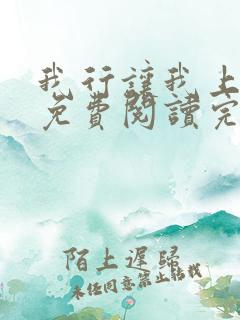 我行讓我上
免費閱讀完
陌上遲歸
未經同意禁止轉載